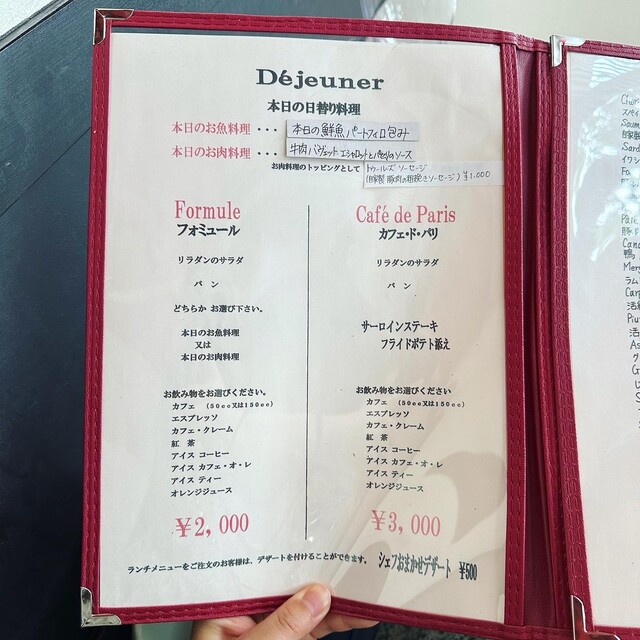 Déjeuner
本日の日替り料理
本日のお魚料理 ・・・ 本日の鮮魚 パートフィロ包み
本日のお肉料理 ・・・ 牛肉バヴェット エシャロットとパセリのソース
お肉料理のトッピングとして トゥールーズソーセージ
(自家製 豚肉の粗挽きソーセージ) ¥1.000
Formule
フォミュール
リラダンのサラダ
パン
どちらか お選び下さい。
本日のお魚料理
又は
本日のお肉料理
お飲み物をお選びください。
カフェ (50cc又は150cc)
エスプレッソ
カフェ・クレーム
紅 茶
アイス コーヒー
アイス カフェ・オ・レ
アイス ティー
オレンジジュース
¥2,000
Café de Paris
カフェ・ド・パリ
リラダンのサラダ
パン
サーロインステーキ
フライドポテト添え
お飲み物をお選びください。
カフェ (50cc又は150cc)
エスプレッソ
カフェ・クレーム
紅 茶
アイス コーヒー
アイス カフェ・オ・レ
アイス ティー
オレンジジュース
¥3,000
ランチメニューをご注文のお客様は、デザートを付けることができます。 シェフおまかせデザート ¥500